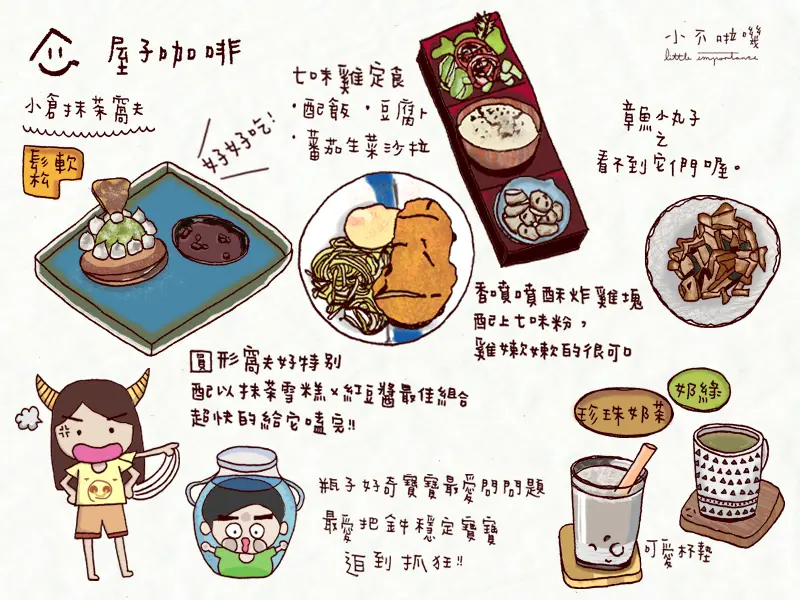 屋子咖啡
小不啦嘰
little importance
小倉抹茶窩夫
鬆軟
好好吃!
七味雞定食
·配飯·豆腐
·蕃茄生菜沙拉
章魚小丸子
之
看不到它們喔。
香噴噴酥炸雞塊
配上七味粉,
雞嫩嫩的很可口
圓形窩夫好特別
配以抹茶雪糕×紅豆醬最佳組合
超快的給它嗑完!!
珍珠奶茶
奶綠
瓶子好奇寶寶最愛問問題
最愛把鉡穩定寶寶
逼到抓狂!!
可愛杯墊